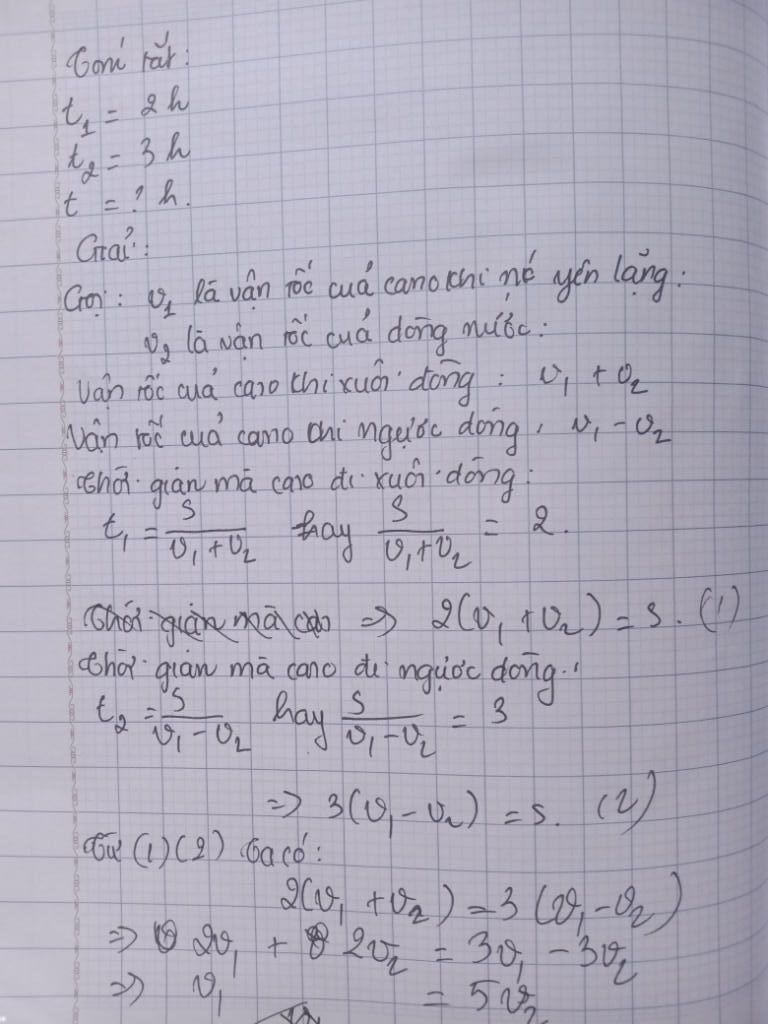 Tóm tắt:
t₁ = 2h
t₂ = 3h
t = ? h.
Giải:
Gọi: v₁ là vận tốc của cano khi nó yên lặng:
v₂ là vận tốc của dòng nước:
Vận tốc của cano khi xuôi dòng: v₁ + v₂
Vận tốc của cano khi ngược dòng, v₁ - v₂
Thời gian mà cano đi xuôi dòng:
t₁ = S/(v₁ + v₂) hay S/(v₁ + v₂) = 2.
Thời gian mà cano => 2(v₁ + v₂) = S. (1)
Thời gian mà cano đi ngược dòng:
t₂ = S/(v₁ - v₂) hay S/(v₁ - v₂) = 3
=> 3(v₁ - v₂) = S. (2)
Từ (1) (2) ta có:
2(v₁ + v₂) = 3(v₁ - v₂)
=> 2v₁ + 2v₂ = 3v₁ - 3v₂
=> v₁ = 5v₂